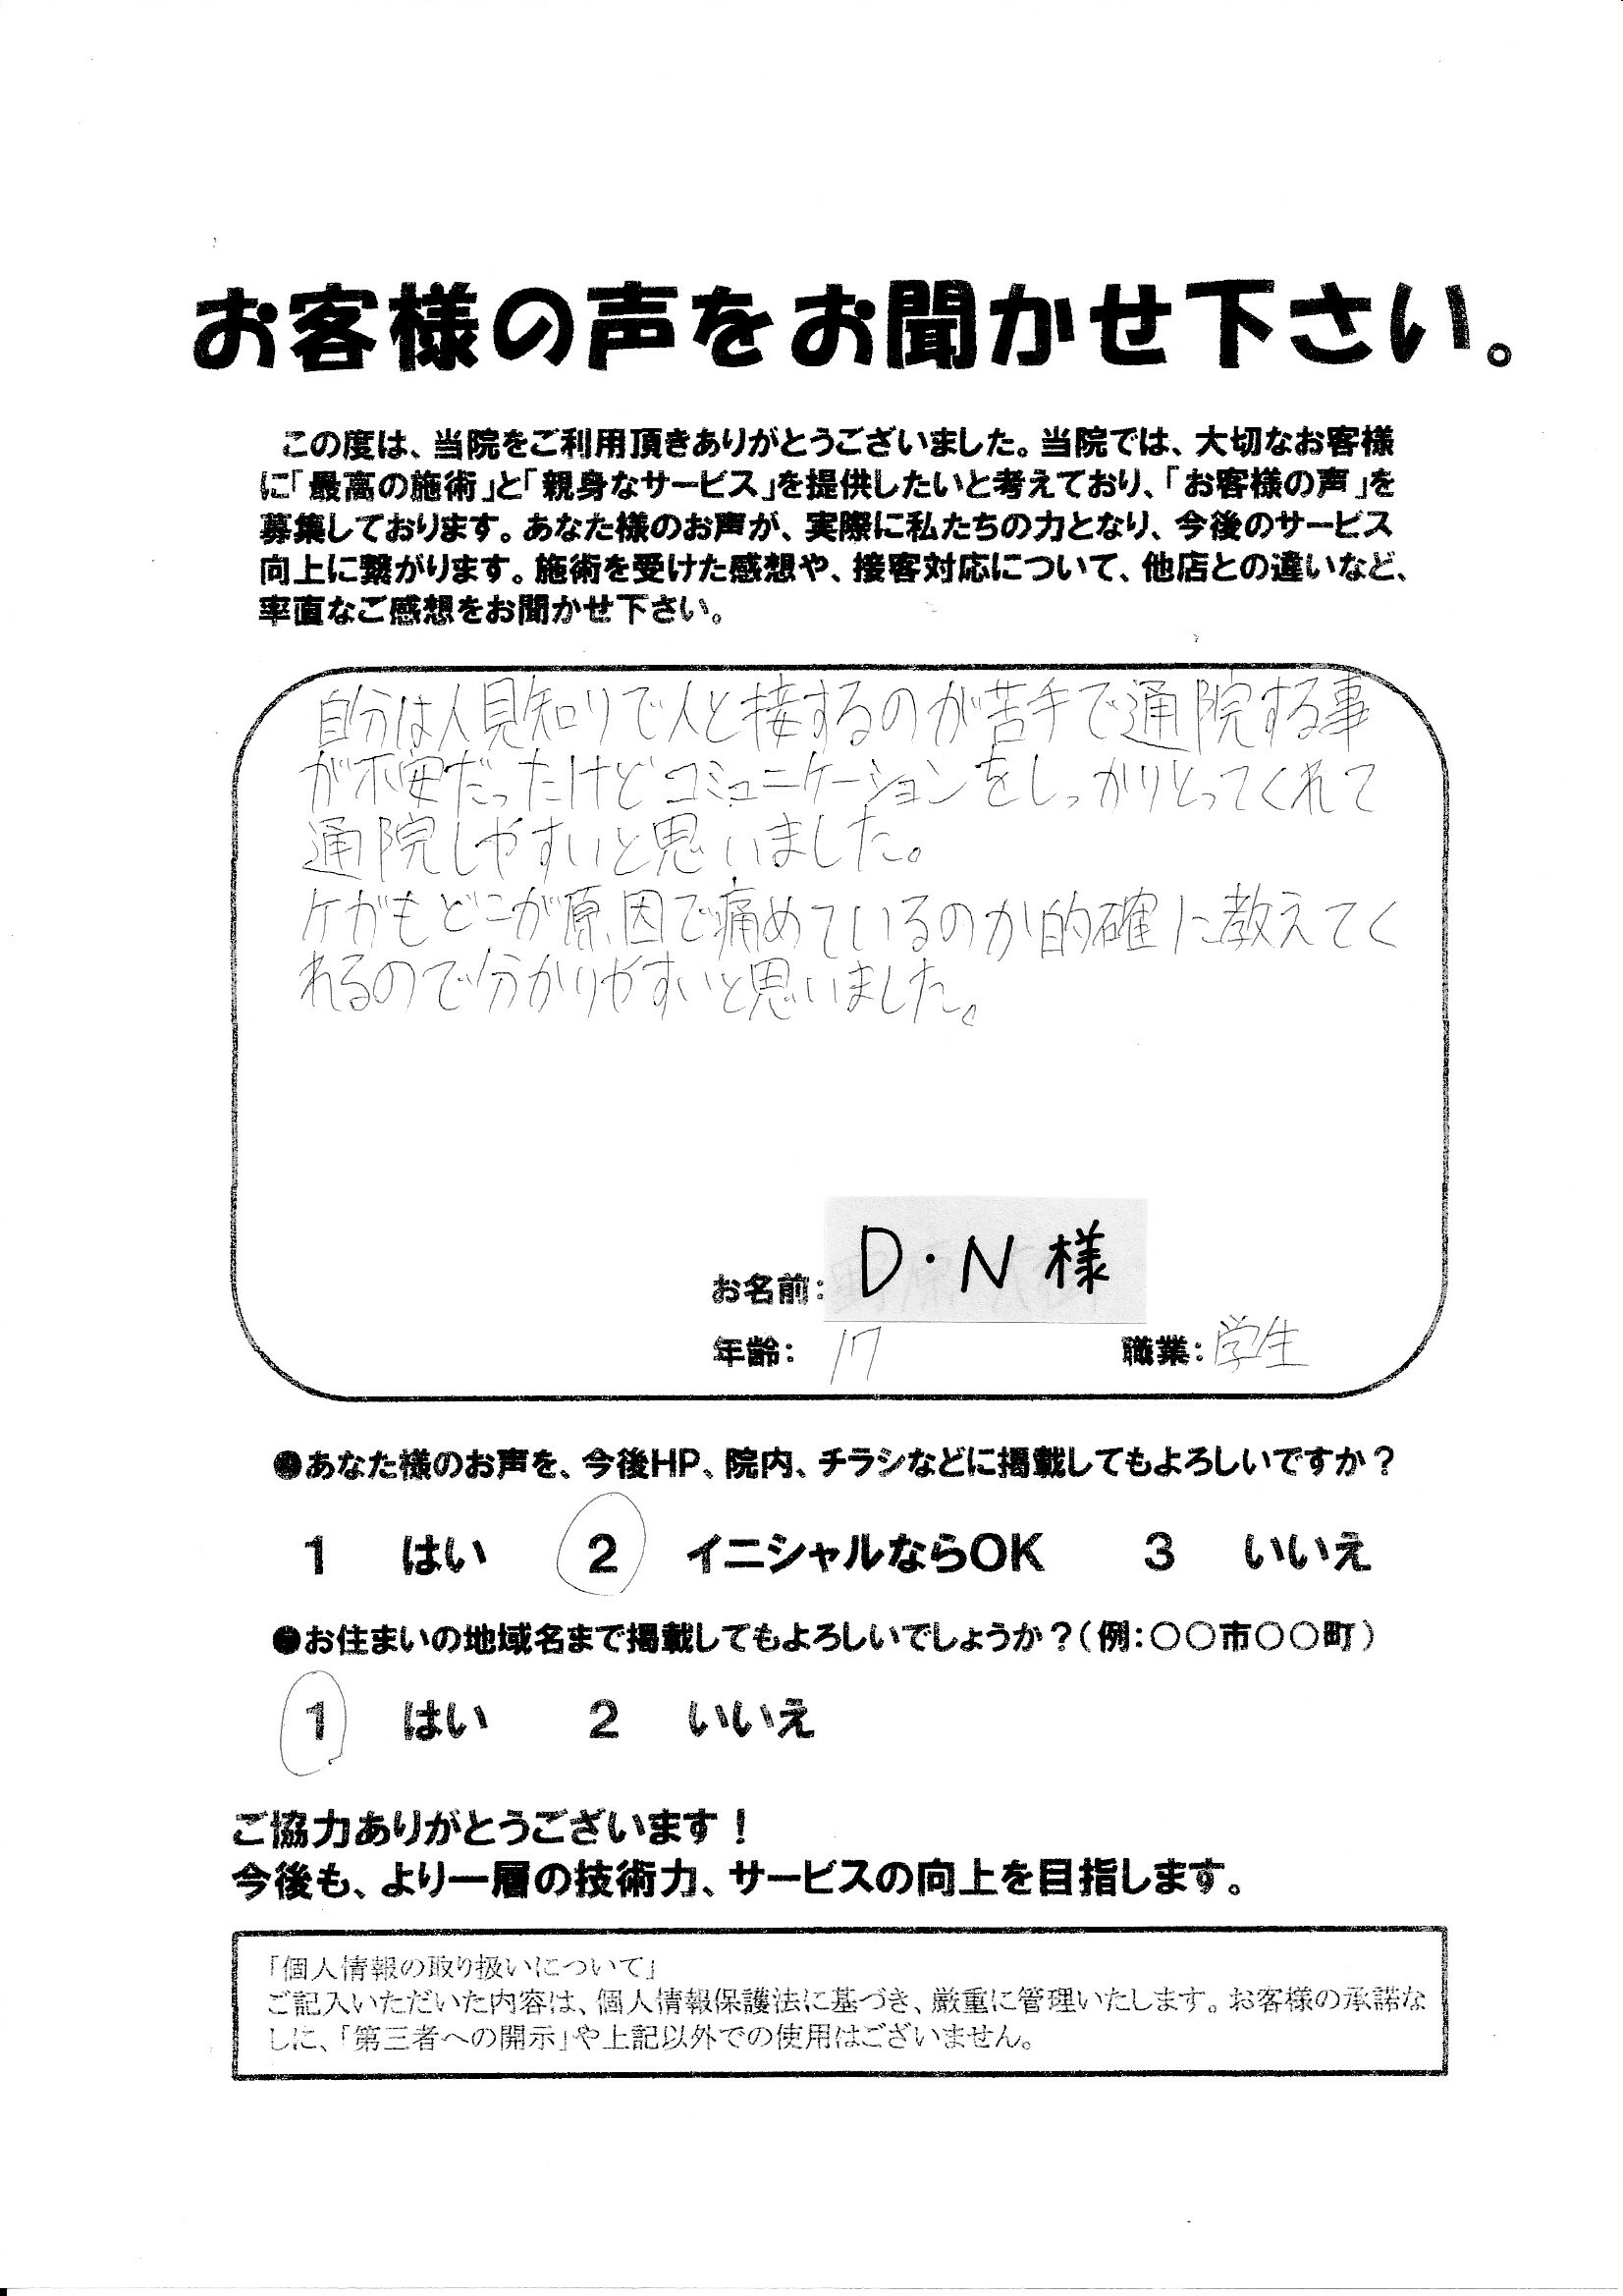 お客様の声をお聞かせ下さい。
この度は、当院をご利用頂きありがとうございました。当院では、大切なお客様
に「最高の施術」と「親身なサービス」を提供したいと考えており、「お客様の声」を
募集しております。あなた様のお声が、実際に私たちの力となり、今後のサービス
向上に繋がります。施術を受けた感想や、接客対応について、他店との違いなど、
率直なご感想をお聞かせ下さい。
自分は人見知りで人と接するのが苦手で通院する事
が不安だったけどコミュニケーションをしっかりとってくれて
通院しやすいと思いました。
ケガもどこが原因で痛めているのか的確に教えてく
れるので分かりやすいと思いました。
お名前: D・N 様
年齢: 17 職業: 学生
●あなた様のお声を、今後HP、院内、チラシなどに掲載してもよろしいですか？
1 はい 2 イニシャルならOK 3 いいえ
●お住まいの地域名まで掲載してもよろしいでしょうか？（例:○○市○○町）
1 はい 2 いいえ
ご協力ありがとうございます！
今後も、より一層の技術力、サービスの向上を目指します。
「個人情報の取り扱いについて」
ご記入いただいた内容は、個人情報保護法に基づき、厳重に管理いたします。お客様の承諾な
しに、「第三者への開示」や上記以外での使用はございません。